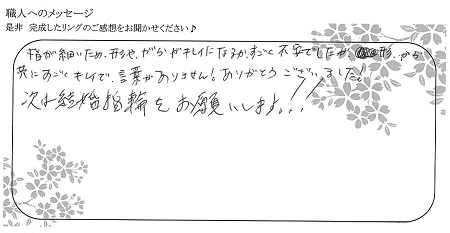 職人へのメッセージ
是非 完成したリングのご感想をお聞かせください♪
指が細いため、形や、がらがキレイになるか、すごく不安でしたが 形、がら
共にすごくキレイで、言葉がありません！ありがとうございました！
次は結婚指輪をお願いします!!